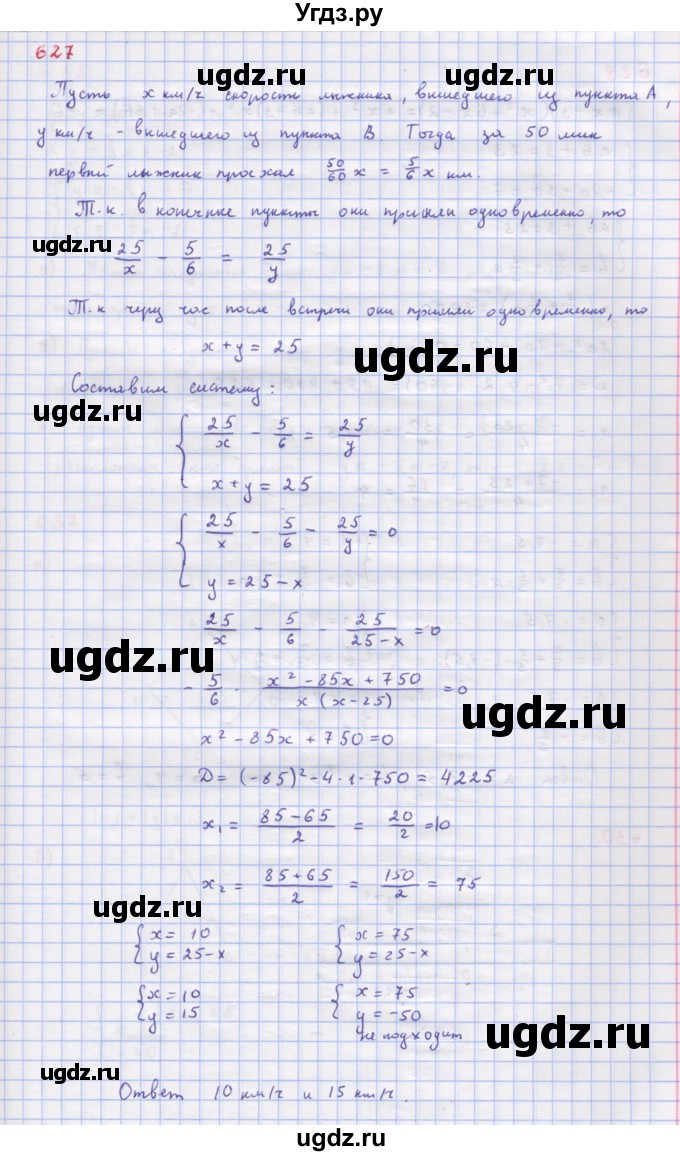 Угдз.ру
627
ugdz.ru ugdz.ru
Пусть x км/ч скорость лыжника, вышедшего из пункта A,
y км/ч - вышедшего из пункта B. Тогда за 50 мин
первый лыжник проехал 50/60 x = 5/6 x км.
Т.к. в конечные пункты они пришли одновременно, то
ugdz.ru
25/x - 5/6 = 25/y
Т.к через час после встречи они пришли одновременно, то
x + y = 25
ugdz.ru
Составим систему:
ugdz.ru
{ 25/x - 5/6 = 25/y
x + y = 25
{ 25/x - 5/6 - 25/y = 0
y = 25 - x
25/x - 5/6 - 25/(25-x) = 0
ugdz.ru
- 5/6 · (x² - 85x + 750)/(x(x-25)) = 0
ugdz.ru
x² - 85x + 750 = 0
D = (-85)² - 4·1·750 = 4225
x₁ = (85-65)/2 = 20/2 = 10
x₂ = (85+65)/2 = 150/2 = 75
ugdz.ru
{ x = 10 { x = 75
y = 25 - x y = 25 - x
{ x = 10 { x = 75
y = 15 y = -50
не подходит
ugdz.ru
ugdz.ru
Ответ 10 км/ч и 15 км/ч.
ugdz.ru